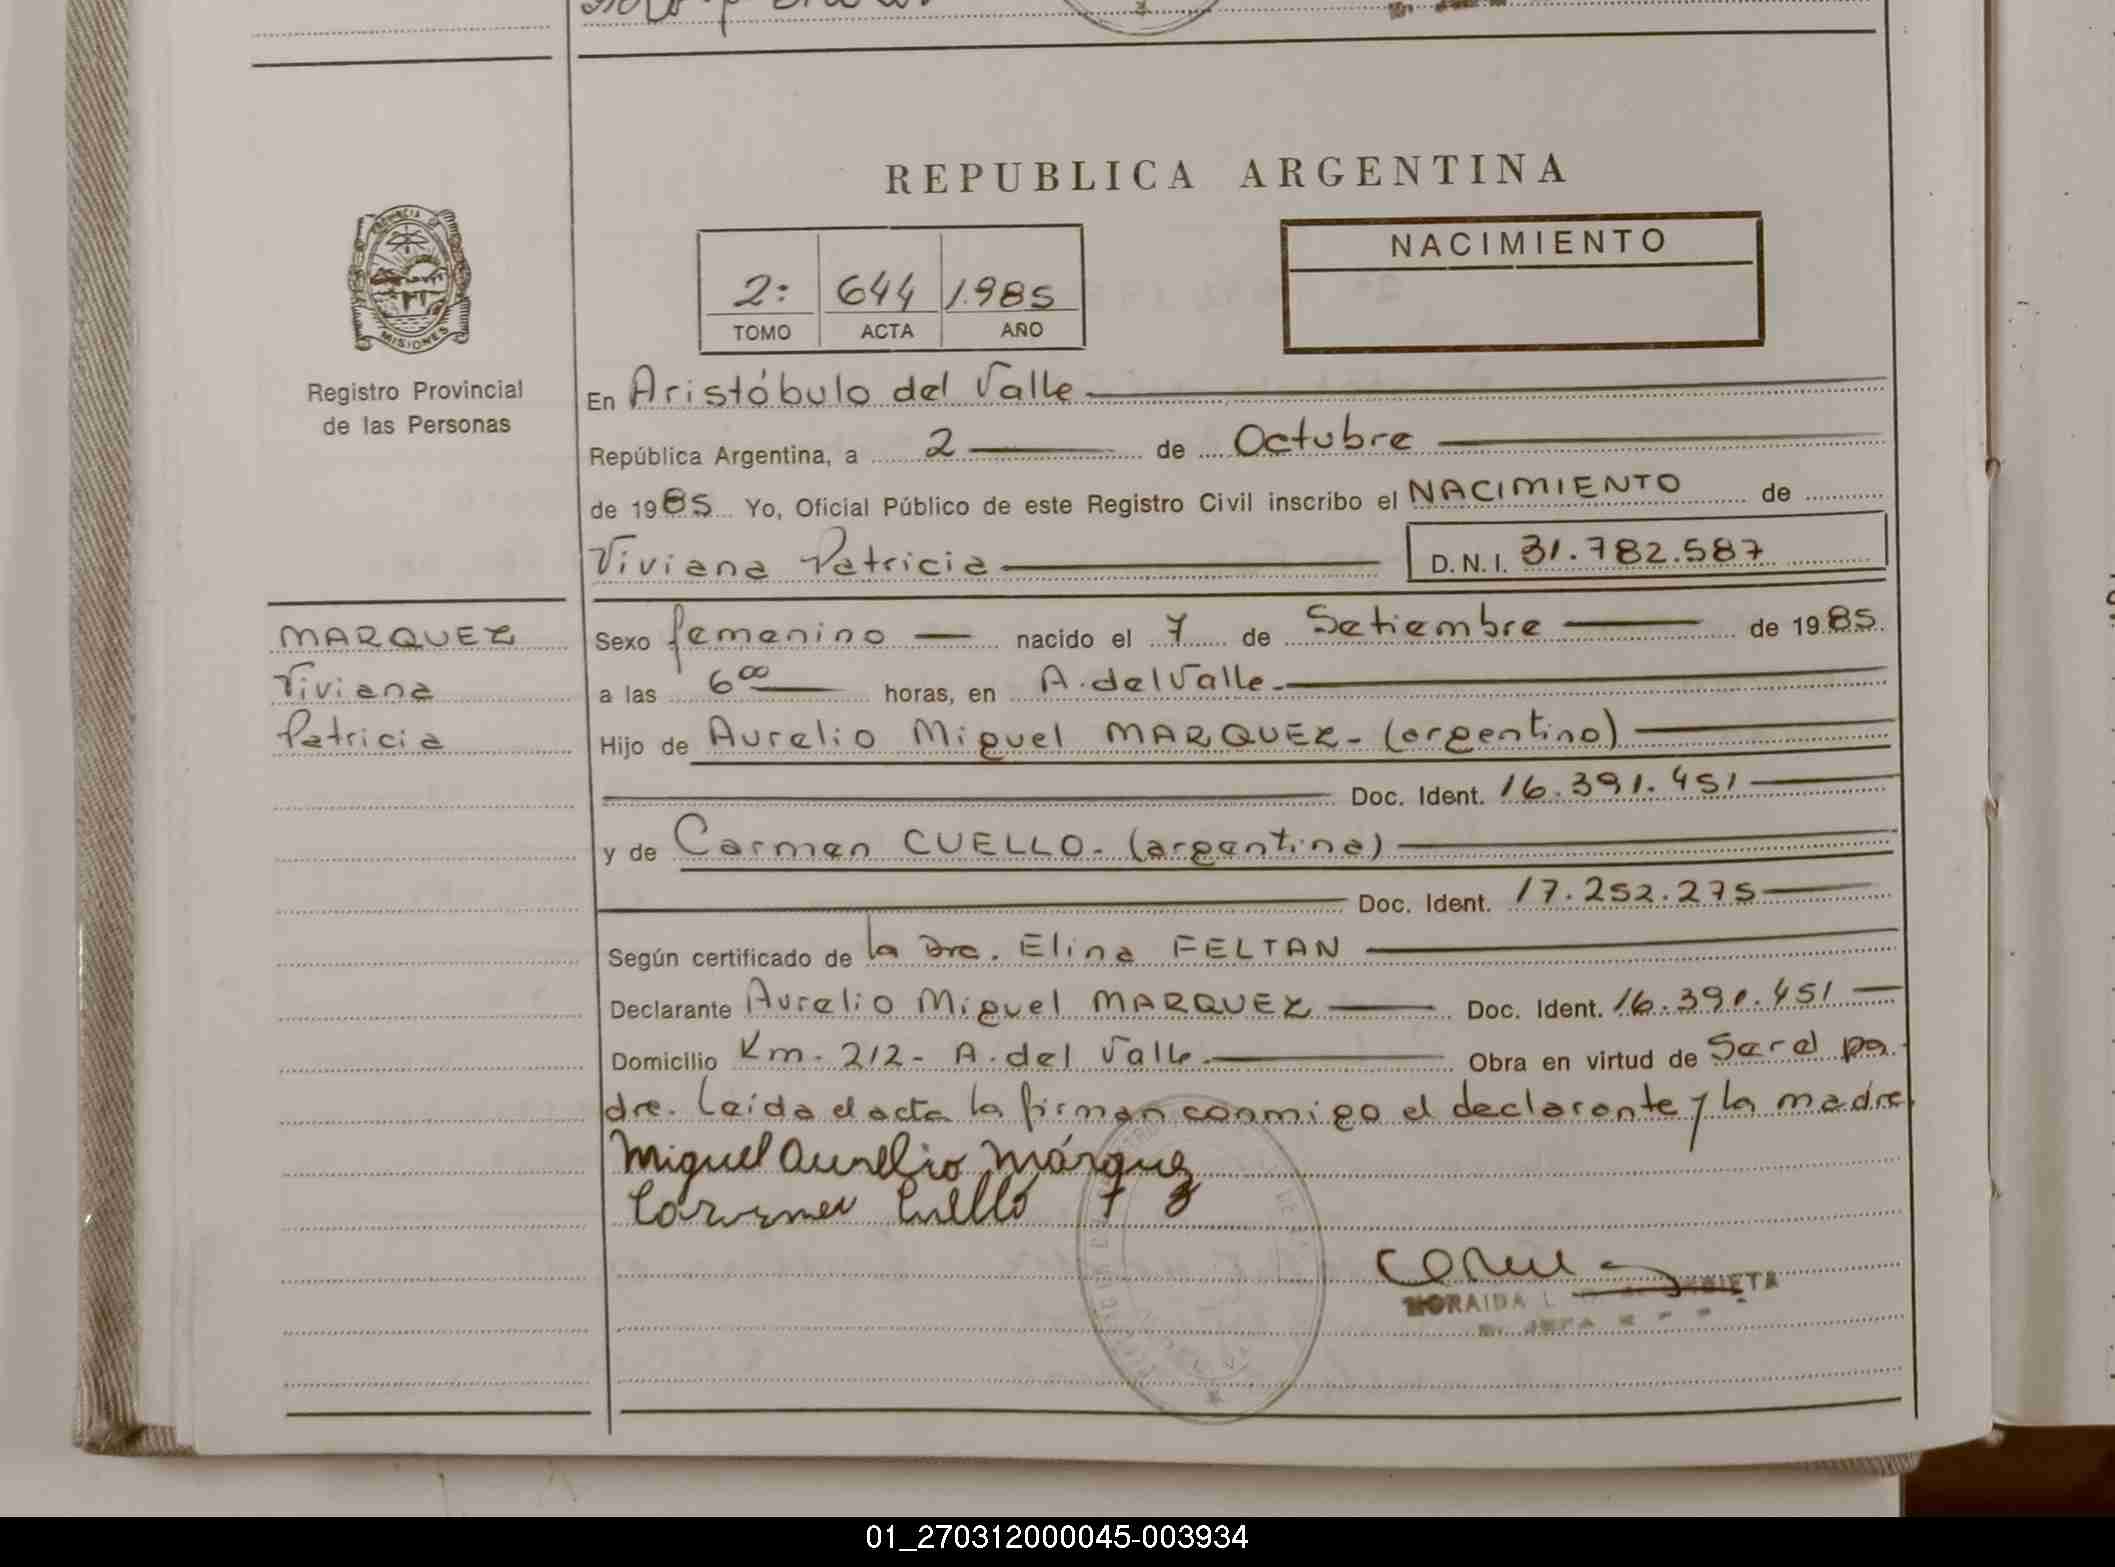 REPUBLICA ARGENTINA
PROVINCIA DE
MISIONES
Registro Provincial
de las Personas
2: 644 1.985
TOMO ACTA AÑO
NACIMIENTO
En Aristóbulo del Valle
República Argentina, a 2 de Octubre
de 1985 Yo, Oficial Público de este Registro Civil inscribo el NACIMIENTO de
Viviana Patricia D.N.I. 31.782.587
MARQUEZ
Viviana
Patricia
Sexo femenino nacido el 7 de Setiembre de 1985
a las 6 00 horas, en A. del Valle.
Hijo de Aurelio Miguel MARQUEZ- (argentino)
Doc. Ident. 16.391.451
y de Carmen CUELLO- (argentina)
Doc. Ident. 17.252.275
Según certificado de la Dra. Elina FELTAN
Declarante Aurelio Miguel MARQUEZ Doc. Ident. 16.391.451
Domicilio Km- 212- A. del Valle. Obra en virtud de Ser el pa-
dre. Leída el acta la firman conmigo el declarante y la madre
Miguel Aurelio Márquez
Carmen Cuello
NORAIDA L
01_270312000045-003934